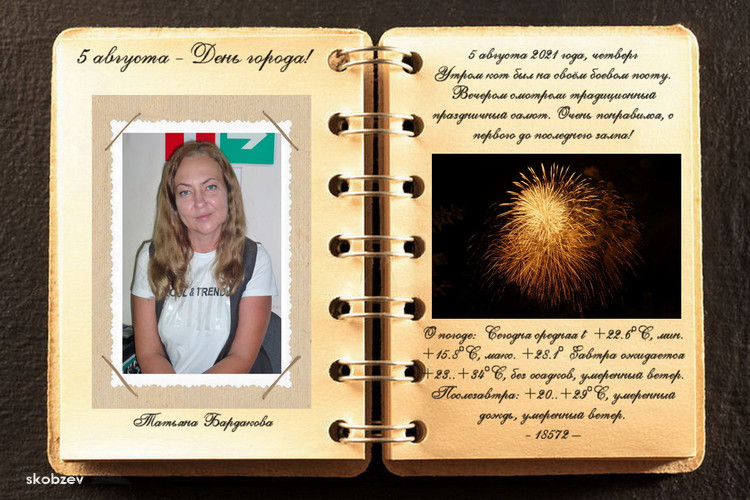 5 августа - День города!
COOL & TREND
Татьяна Бардакова
5 августа 2021 года, четверг
Утром кот был на своём боевом посту.
Вечером смотрели традиционный
праздничный салют. Очень понравился, с
первого до последнего залпа!
О погоде: Сегодня средняя t +22.6°C, мин.
+15.8°C, макс. +28.1° Завтра ожидается
+23..+34°C, без осадков, умеренный ветер.
Послезавтра: +20..+29°C, умеренный
дождь, умеренный ветер.
- 18572 –
skobzev